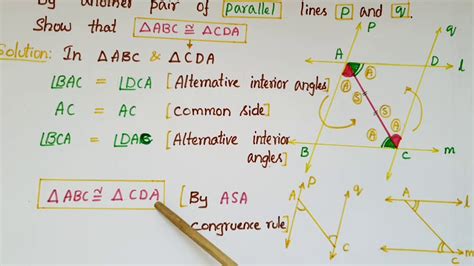 By another pair of parallel lines p and q.
Show that △ABC ≅ △CDA
Solution: In △ABC & △CDA
∠BAC = ∠DCA [Alternative interior angles]
AC = AC [common side]
∠BCA = ∠DAC [Alternative interior angles]
△ABC ≅ △CDA [By ASA congruence rule]
P q
A D l
A
A
S
S
A
A
B C m
P q
A
C
A l
C m